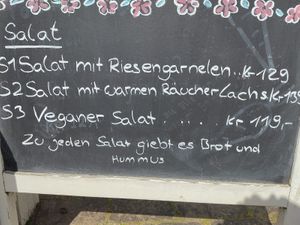 Salat
S1 Salat mit Riesengarnelen..Kr 129
S2 Salat mit warmen Räucher Lachs Kr 139
S3 Veganer Salat..... Kr 119,-
Zu jeden Salat giebt es Brot und
Hummus